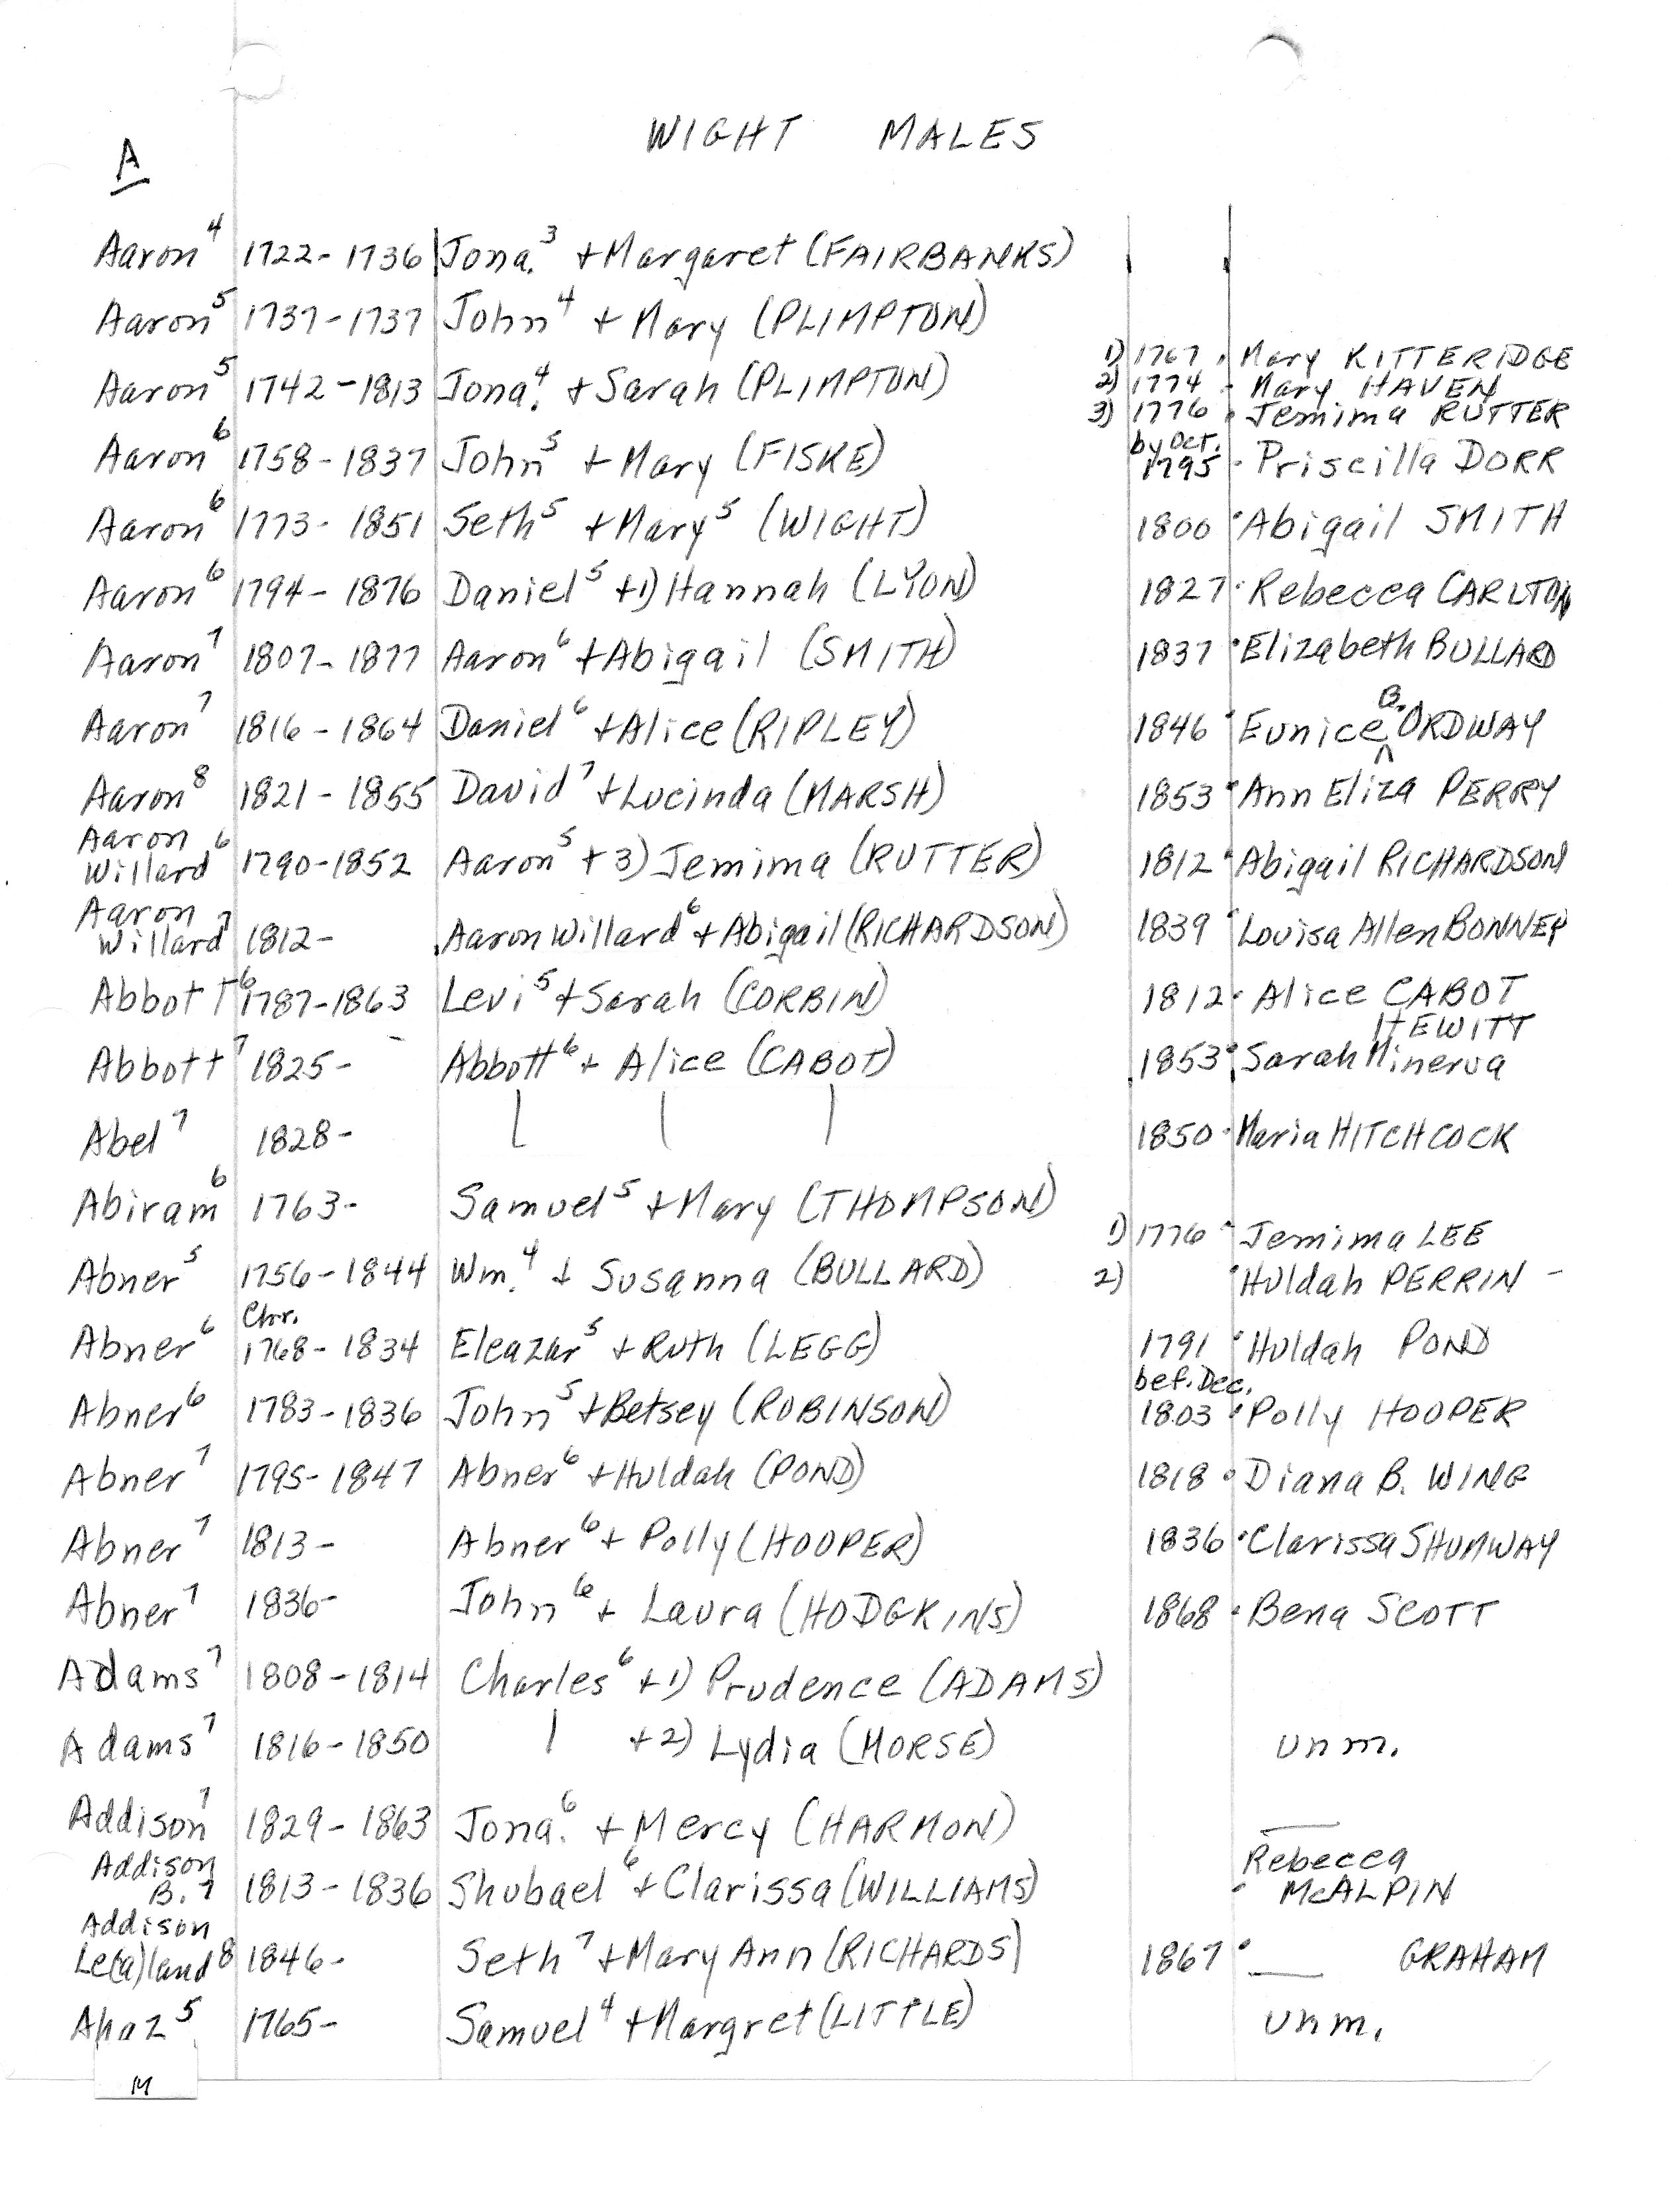 WIGHT MALES
A
Aaron⁴ 1722-1736 Jona.³ + Margaret (FAIRBANKS)
Aaron⁵ 1737-1737 John⁴ + Mary (PLIMPTON)
1) 1767 Mary KITTERIDGE
Aaron⁵ 1742-1813 Jona.⁴ + Sarah (PLIMPTON) 2) 1774 Mary HAVEN
3) 1776 Jemima RUTTER
by Oct.
Aaron⁶ 1758-1837 John⁵ + Mary (FISKE) 1795 Priscilla DORR
Aaron⁶ 1773-1851 Seth⁵ + Mary⁵ (WIGHT) 1800 Abigail SMITH
Aaron⁶ 1794-1876 Daniel⁵ +1) Hannah (LYON) 1827 Rebecca CARLTON
Aaron⁷ 1807-1877 Aaron⁶ + Abigail (SMITH) 1837 Elizabeth BULLARD
Aaron⁷ 1816-1864 Daniel⁶ + Alice (RIPLEY) 1846 Eunice B. ORDWAY
Aaron⁸ 1821-1855 David⁷ + Lucinda (MARSH) 1853 Ann Eliza PERRY
Aaron
Willard⁶ 1790-1852 Aaron⁵ + 3) Jemima (RUTTER) 1812 Abigail RICHARDSON
Aaron
Willard⁷ 1812- Aaron Willard⁶ + Abigail (RICHARDSON) 1839 Louisa Allen BONNEY
Abbott⁶ 1787-1863 Levi⁵ + Sarah (CORBIN) 1812 Alice CABOT
HEWITT
Abbott⁷ 1825- Abbott⁶ + Alice (CABOT) 1853 Sarah Minerva
Abel⁷ 1828- | | | 1850 Maria HITCHCOCK
Abiram⁶ 1763- Samuel⁵ + Mary (THOMPSON)
1) 1776 Jemima LEE
Abner⁵ 1756-1844 Wm.⁴ + Susanna (BULLARD) 2) Huldah PERRIN -
Chr.
Abner⁶ 1768-1834 Eleazar⁵ + Ruth (LEGG) 1791 Huldah POND
bef. Dec.
Abner⁶ 1783-1836 John⁵ + Betsey (ROBINSON) 1803 Polly HOOPER
Abner⁷ 1795-1847 Abner⁶ + Huldah (POND) 1818 Diana B. WING
Abner⁷ 1813- Abner⁶ + Polly (HOOPER) 1836 Clarissa SHUMWAY
Abner⁷ 1836- John⁶ + Laura (HODGKINS) 1868 Bena SCOTT
Adams⁷ 1808-1814 Charles⁶ +1) Prudence (ADAMS)
Adams⁷ 1816-1850 | +2) Lydia (MORSE) unm.
Addison⁷ 1829-1863 Jona.⁶ + Mercy (HARMON)
Addison Rebecca
B.⁷ 1813-1836 Shubael⁶ + Clarissa (WILLIAMS) McALPIN
Addison
Le(a)land⁸ 1846- Seth⁷ + Mary Ann (RICHARDS) 1867 ___ GRAHAM
Ahaz⁵ 1765- Samuel⁴ + Margret (LITTLE) unm.
M